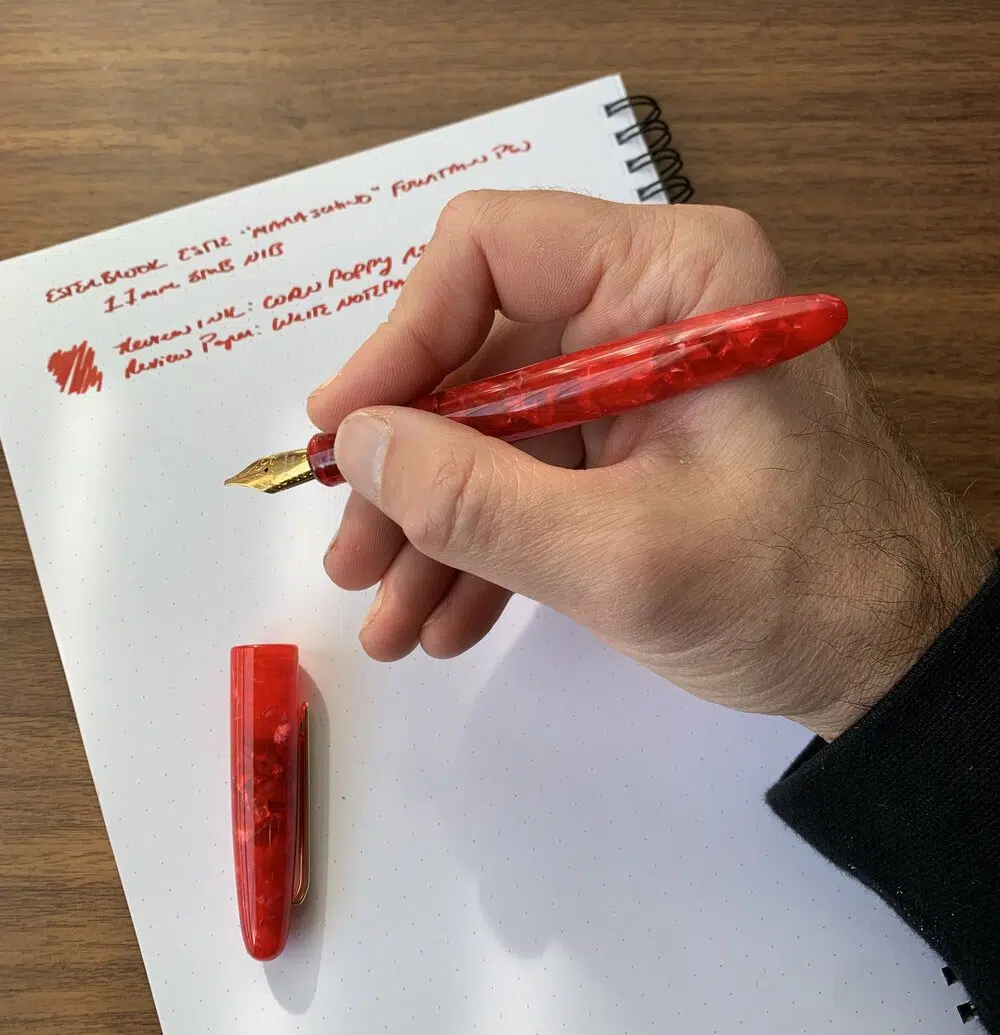 ESTERBROOK ESTIE "MARASCHINO" FOUNTAIN PEN
1.1mm STUB NIB
REVIEW INK: CORN POPPY RED
REVIEW PAPER: WRITE NOTEPA